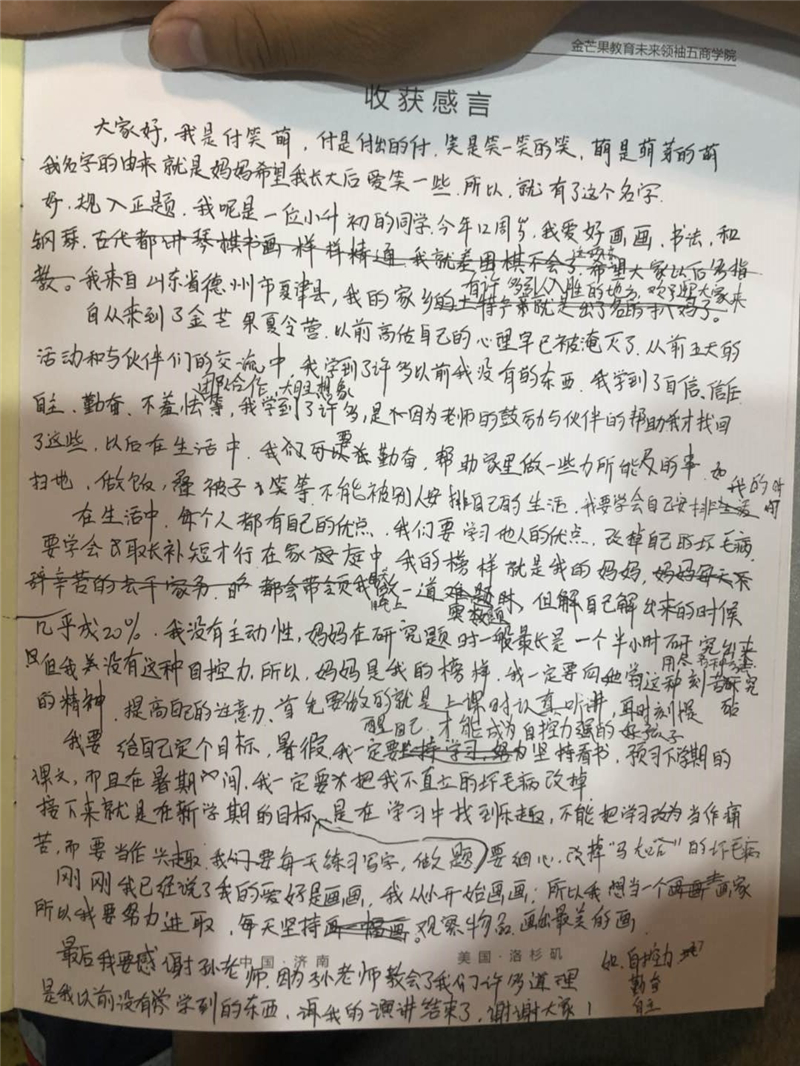 金芒果教育未来领袖五商学院
收获感言
大家好，我是付笑萌，付是付出的付，笑是笑一笑的笑，萌是萌芽的萌
我名字的由来就是妈妈希望我长大后爱笑一些.所以，就有了这个名字.
好.规入正题.我呢是一位小升初的同学.今年12周岁.我爱好画画、书法、和
钢琴.古代都讲琴棋书画样样精通.我就差围棋不会了.希望大家以后多指
教。我来自山东省德州市夏津县，我的家乡有许多引人入胜的地方，欢迎大家来
土特产就是出了名的
自从来到了金芒果夏令营.以前高估自己的心理早已被淹灭了.从前五天的
活动和与伙伴们的交流中，我学到了许多以前我没有的东西.我学到了自信、信任
团队合作、大胆想象
自主、勤奋、不羞怯等，我学到了许多，是因为老师的鼓励与伙伴的帮助我才找回
了这些，以后在生活中.我们要勤奋，帮助家里做一些力所能及的事.如
扫地，做饭，叠被子等.不能被别人安排自己的生活.我要学会自己安排我的时间
在生活中.每个人都有自己的优点.我们要学习他人的优点.改掉自己的坏毛病
要学会取长补短才行在家庭中.我的榜样就是我的妈妈.妈妈每天不
辞辛苦的去干家务.都会带领我做一道难题
晚上
奥数题
，但解自己解出来的时候
几乎成20%.我没有主动性，妈妈在研究题时一般最长是一个半小时研究出来
但我并没有这种自控力.所以，妈妈是我的榜样.我一定要向她学这种刻苦研究
的精神.提高自己的注意力.首先要做的就是上课时认真听讲，时刻提
醒自己，才能成为自控力强的好孩子
我要给自己定个目标，暑假.我一定要坚持学习，坚持看书，预习下学期的
课文，而且在暑期间，我一定要把我不直立的坏毛病改掉
接下来就是在新学期的目标，是在学习中找到乐趣，不能把学习当作痛
苦，而要当作兴趣.我们要每天练习写字，做题，要细心.改掉“马大哈”的坏毛病
刚刚我已经说了我的爱好是画画，我从小开始画画；所以我想当一个画家
所以我要努力进取，每天坚持画一幅画。观察物品.画出最美的画.
最后我要感谢孙老师.因为孙老师教会了我们许多道理
中国·济南
美国·洛杉矶
如.自控力
勤奋
自主
是我以前没有学到的东西.我的演讲结束了，谢谢大家！